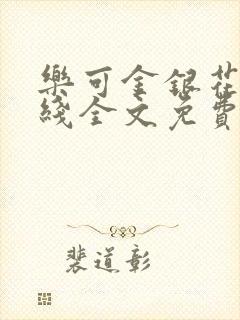 樂可金銀花
綫全文免費
裴道彰